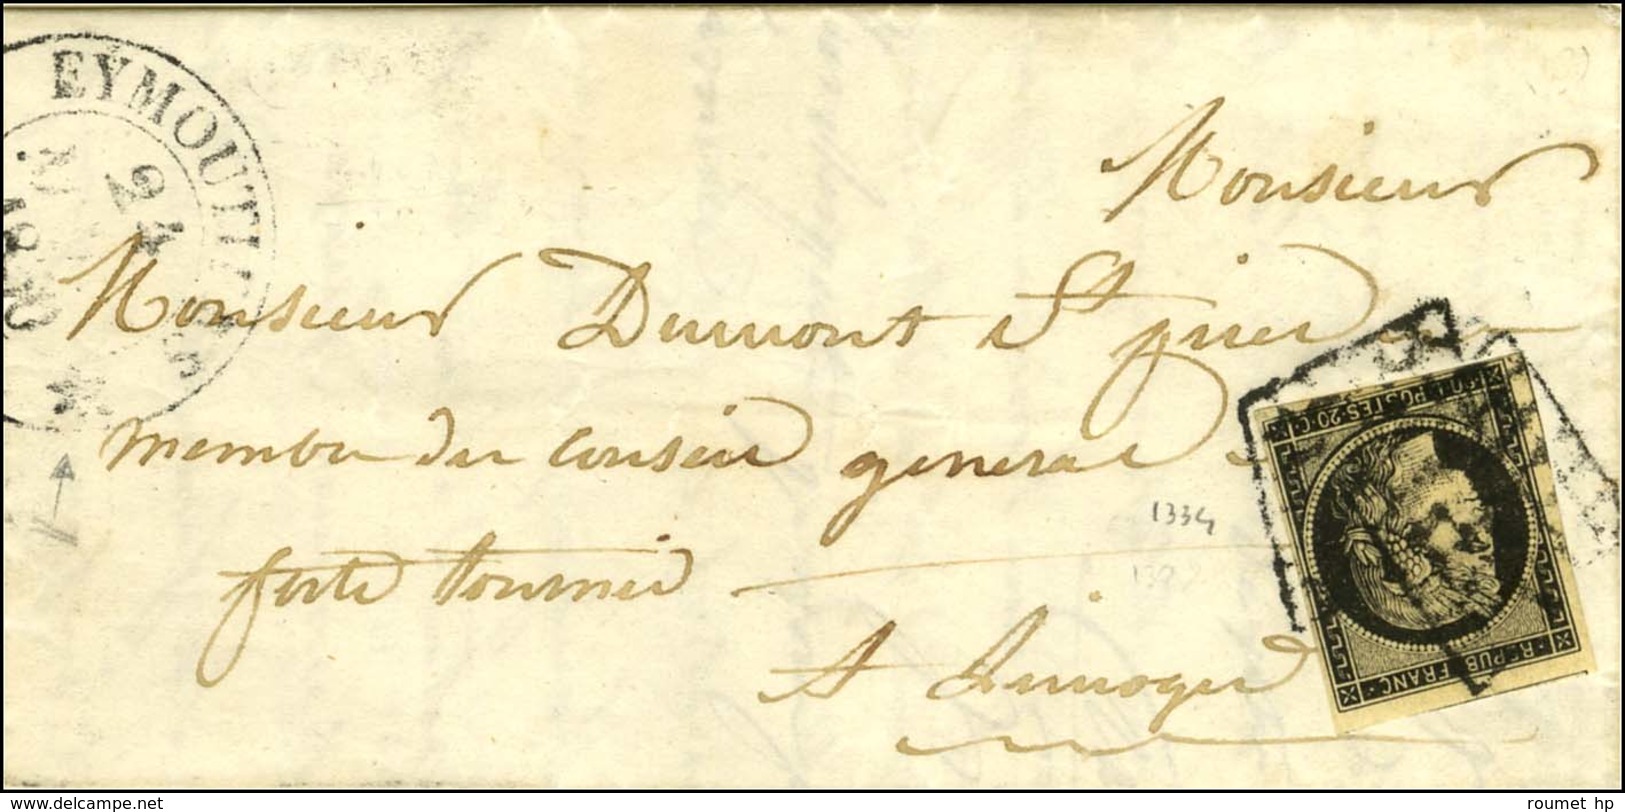 EYMOUTIERS
24
Monsieur
Monsieur Dumont St priest
membre du conseil general
porte tournie
A Limoges
1334
139
20 C · POSTES · 20 C
REPUB FRANC
www.delcampe.net
roumet hp